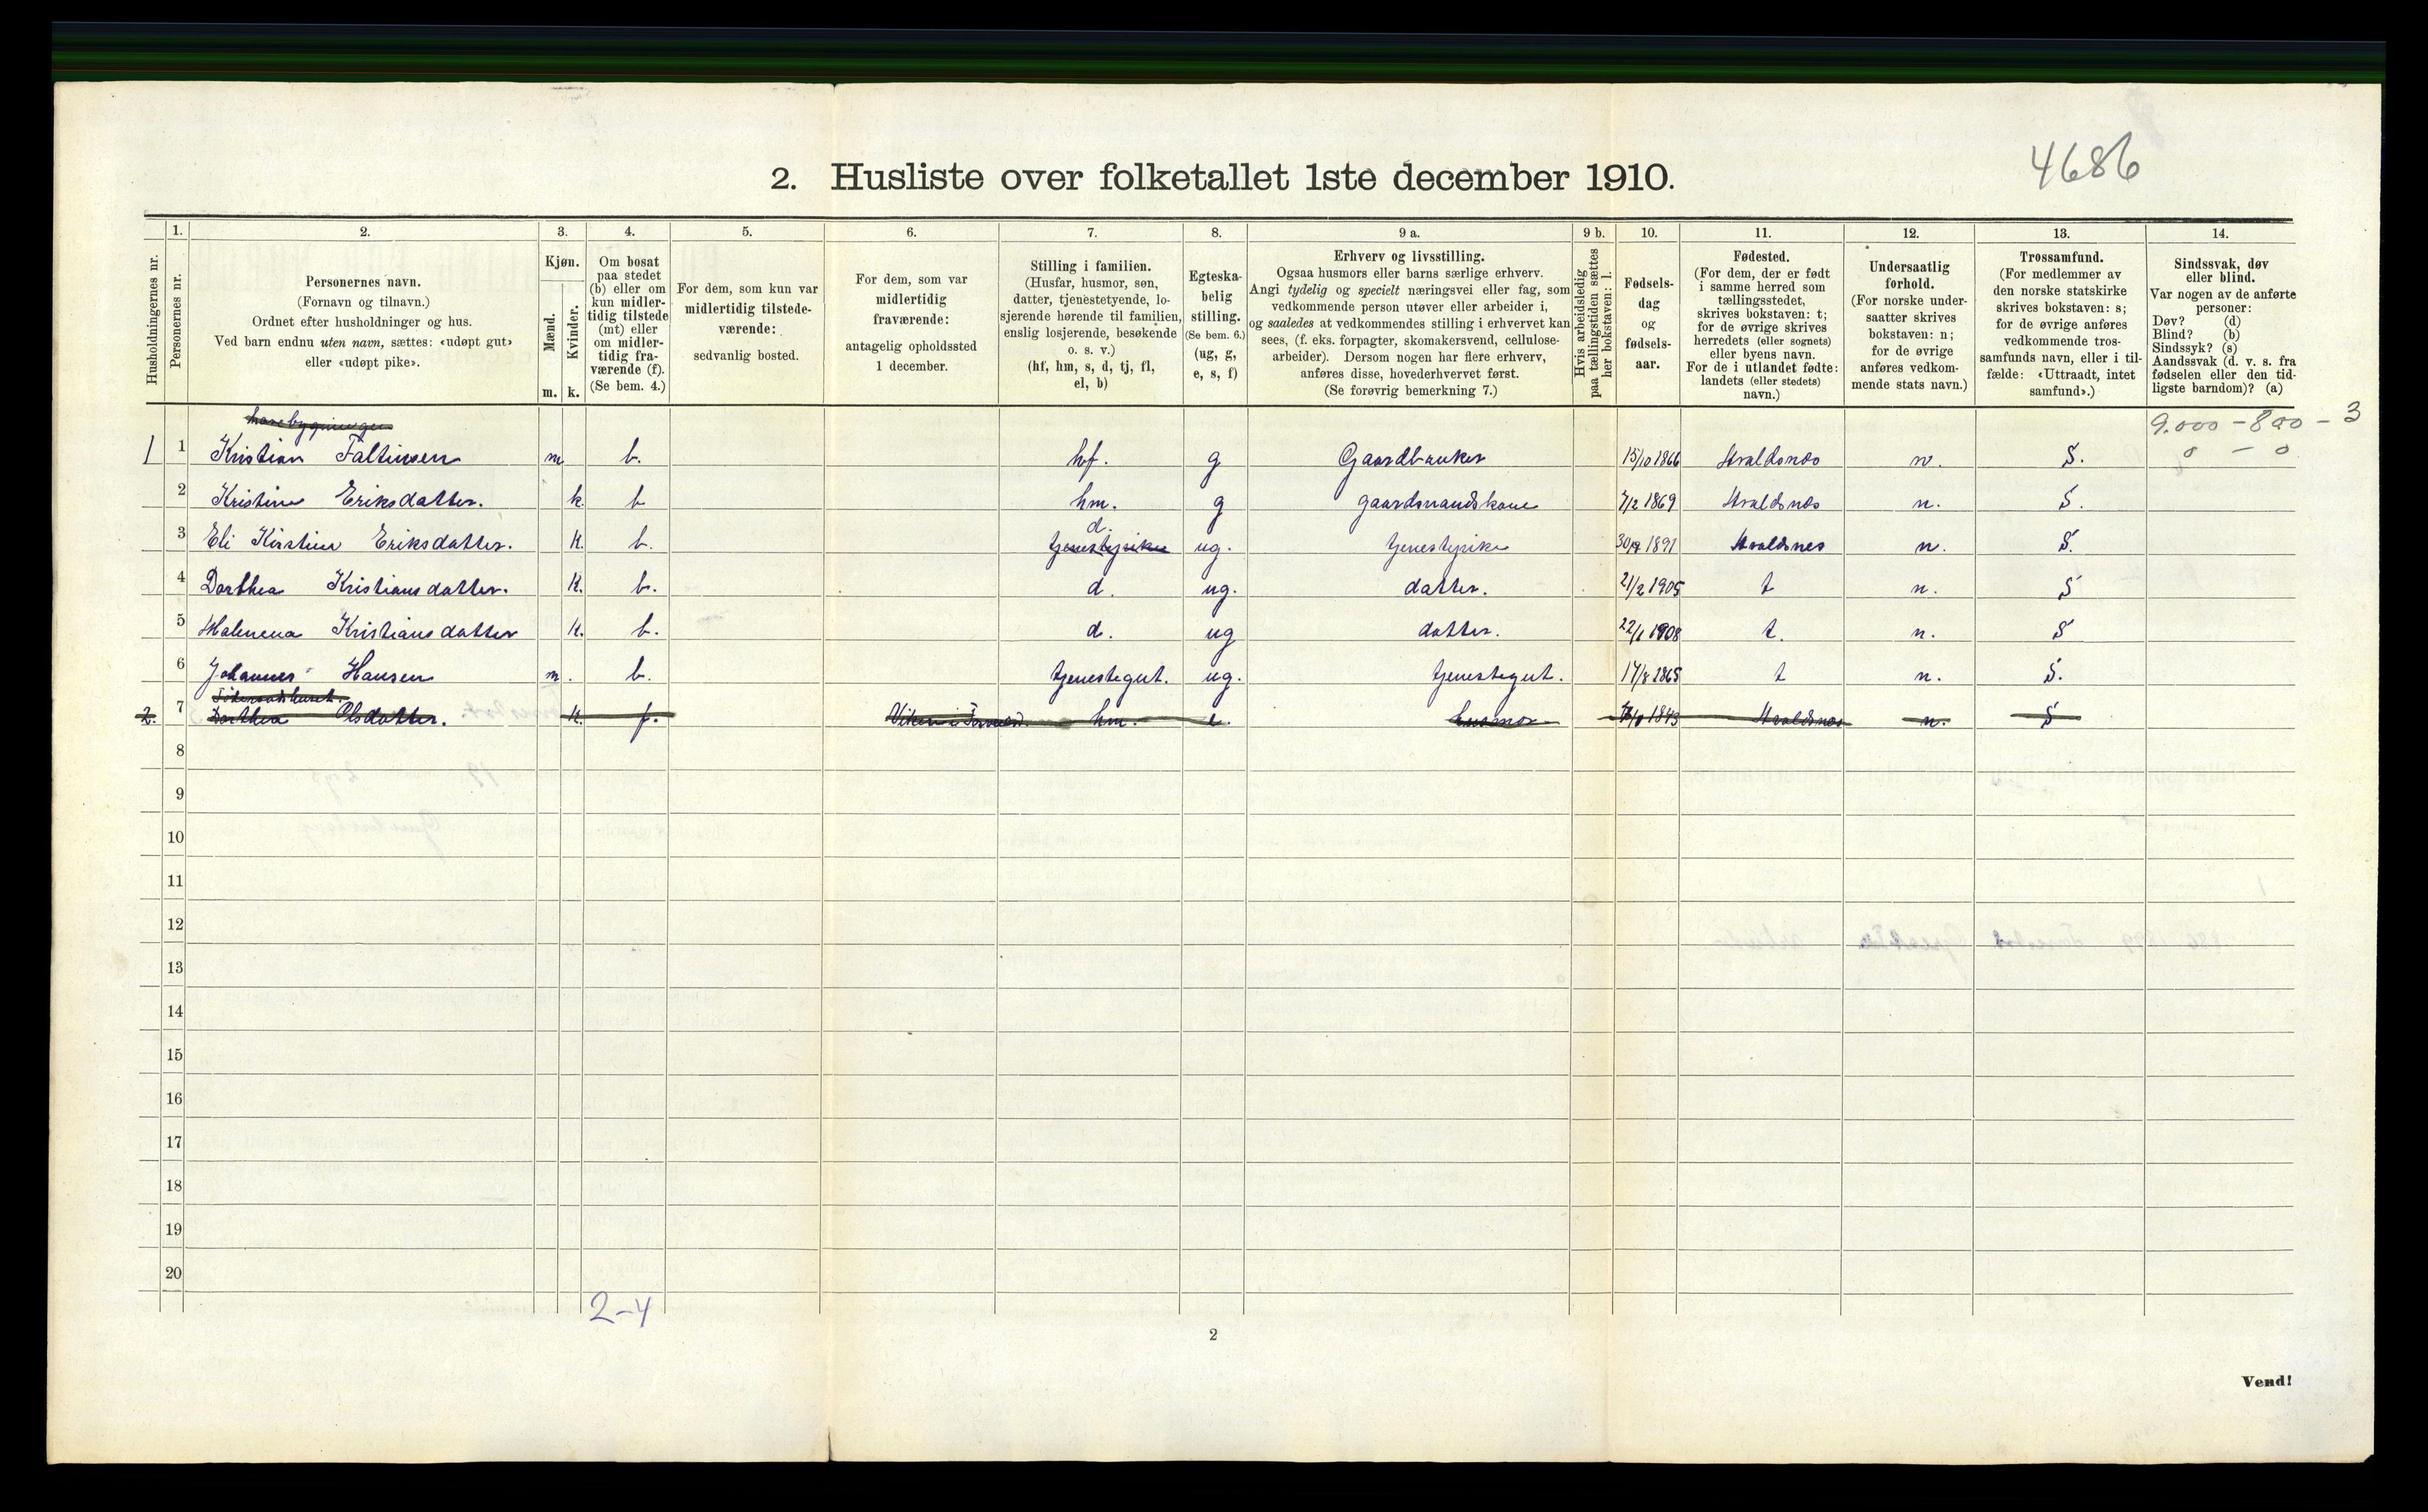 4686
2. Husliste over folketallet 1ste december 1910.
Husholdningernes nr.
1. Personernes nr.
2. Personernes navn. (Fornavn og tilnavn.) Ordnet efter husholdninger og hus. Ved barn endnu uten navn, sættes: «udøpt gut» eller «udøpt pike».
3. Kjøn. Mænd. m. Kvinder. k.
4. Om bosat paa stedet (b) eller om kun midlertidig tilstede (mt) eller om midlertidig fraværende (f). (Se bem. 4.)
5. For dem, som kun var midlertidig tilstedeværende: sedvanlig bosted.
6. For dem, som var midlertidig fraværende: antagelig opholdssted 1 december.
7. Stilling i familien. (Husfar, husmor, søn, datter, tjenestetyende, losjerende hørende til familien, enslig losjerende, besøkende o. s. v.) (hf, hm, s, d, tj, fl, el, b)
8. Egteskabelig stilling. (Se bem. 6.) (ug, g, e, s, f)
9 a. Erhverv og livsstilling. Ogsaa husmors eller barns særlige erhverv. Angi tydelig og specielt næringsvei eller fag, som vedkommende person utøver eller arbeider i, og saaledes at vedkommendes stilling i erhvervet kan sees, (f. eks. forpagter, skomakersvend, cellulosearbeider). Dersom nogen har flere erhverv, anføres disse, hovederhvervet først. (Se forøvrig bemerkning 7.)
9 b. Hvis arbeidsledig paa tællingstiden sættes her bokstaven: l.
10. Fødselsdag og fødselsaar.
11. Fødested. (For dem, der er født i samme herred som tællingsstedet, skrives bokstaven: t; for de øvrige skrives herredets (eller sognets) eller byens navn. For de i utlandet fødte: landets (eller stedets) navn.)
12. Undersaatlig forhold. (For norske undersaatter skrives bokstaven: n; for de øvrige anføres vedkommende stats navn.)
13. Trossamfund. (For medlemmer av den norske statskirke skrives bokstaven: s; for de øvrige anføres vedkommende trossamfunds navn, eller i tilfælde: «Uttraadt, intet samfund».)
14. Sindssvak, døv eller blind. Var nogen av de anførte personer: Døv? (d) Blind? (b) Sindssyk? (s) Aandssvak (d. v. s. fra fødselen eller den tidligste barndom)? (a)
9.000 - 800 - 3
0 - 0
1 1 Kristian Faltinsen m b. hf. g Gaardbruker 15/10 1866 n. S.
2 Kristine Eriksdatter. k. b hm. g gaardmandskone 7/2 1869 n. S.
3 Eli Kirstine Eriksdatter. k. b. d. tjenestepike ug. tjenestepike 1891 n. S.
4 Dorthea Kristiansdatter. k. b. d. ug. datter. 21/2 1905 t n. S
5 Malenena Kristiansdatter k. b. d. ug datter. 22/1 1908 t. n. S
6 Johannes Hansen m. b. tjenestegut. ug. tjenestegut. 17/8 1865 t n. S.
2. 7 Dorthea Olsdatter. k. f. hm. e. husmor 1843 n. S
8
9
10
11
12
13
14
15
16
17
18
19
20
2-4
2
Vend!